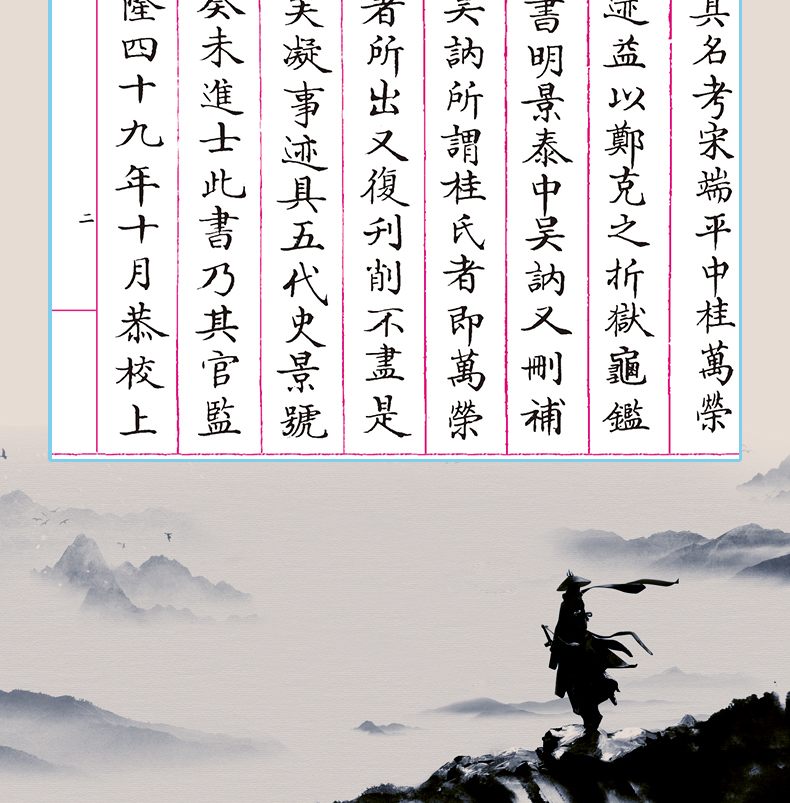 具名考宋端平中桂萬榮
迹益以鄭克之折獄龜鑑
書明景泰中吴訥又刪補
吴訥所謂桂氏者即萬榮
者所出又復刋削不盡是
芙凝事迹具五代史景號
癸未進士此書乃其官監
隆四十九年十月恭校上
二